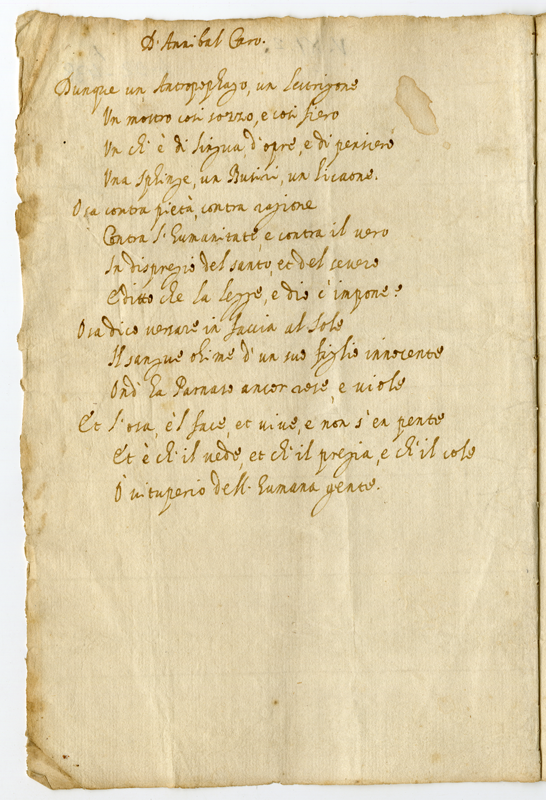 D'Annibal Caro.
Dunque un Antropophago, un Lestrigone
Un mostro così sozzo, e così fiero
Un ch'è di lingua, d'opre, e di pensiero
Una Sphinge, un Busiri, un licaone.
Osa contra pietà, contra ragione
Contra l'humanitate, e contra il vero
In dispregio del santo, et del severo
editto che la legge, e dio c'impone?
Osa dico versare in faccia al Sole
Il sangue ohime d'un suo figlio innocente
Ond'ha Parnaso ancor rose, e viole
Et l'osa, e'l face, et vive, e non s'en pente
Et è chi'il vede, et chi'il pregia, e chi'il cole
O vituperio dell'humana gente.